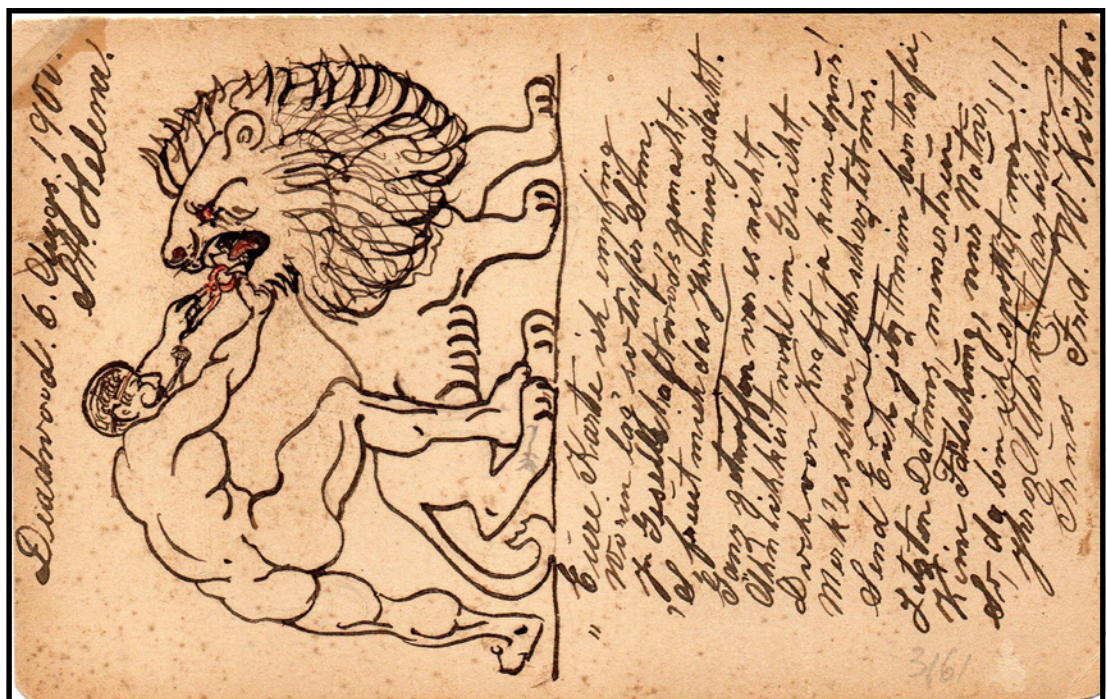 Deadwood. 6. Augs. 1900.
St. Helena.
"Eure Karte ich empfing
Worin lag' so tiefer Sinn
In Gesellschaft ward's gemacht,
'S freut mich das Ihr mein gedacht.
Ganz getroffen war es nicht,
Ähnlichkeit wohl im Gesicht,
Doch von Kraft ja keine Spur!
Merk' es schon Ihr scherztet nur.
Send Euch jetzt mein
Letzten Datums, meiner treu
Keine Fälschung, nur Natur,
So, da bin ich, spottet nur!!!
Allen mit herzlichem
Gruss Frid. W. Köster.
3/61